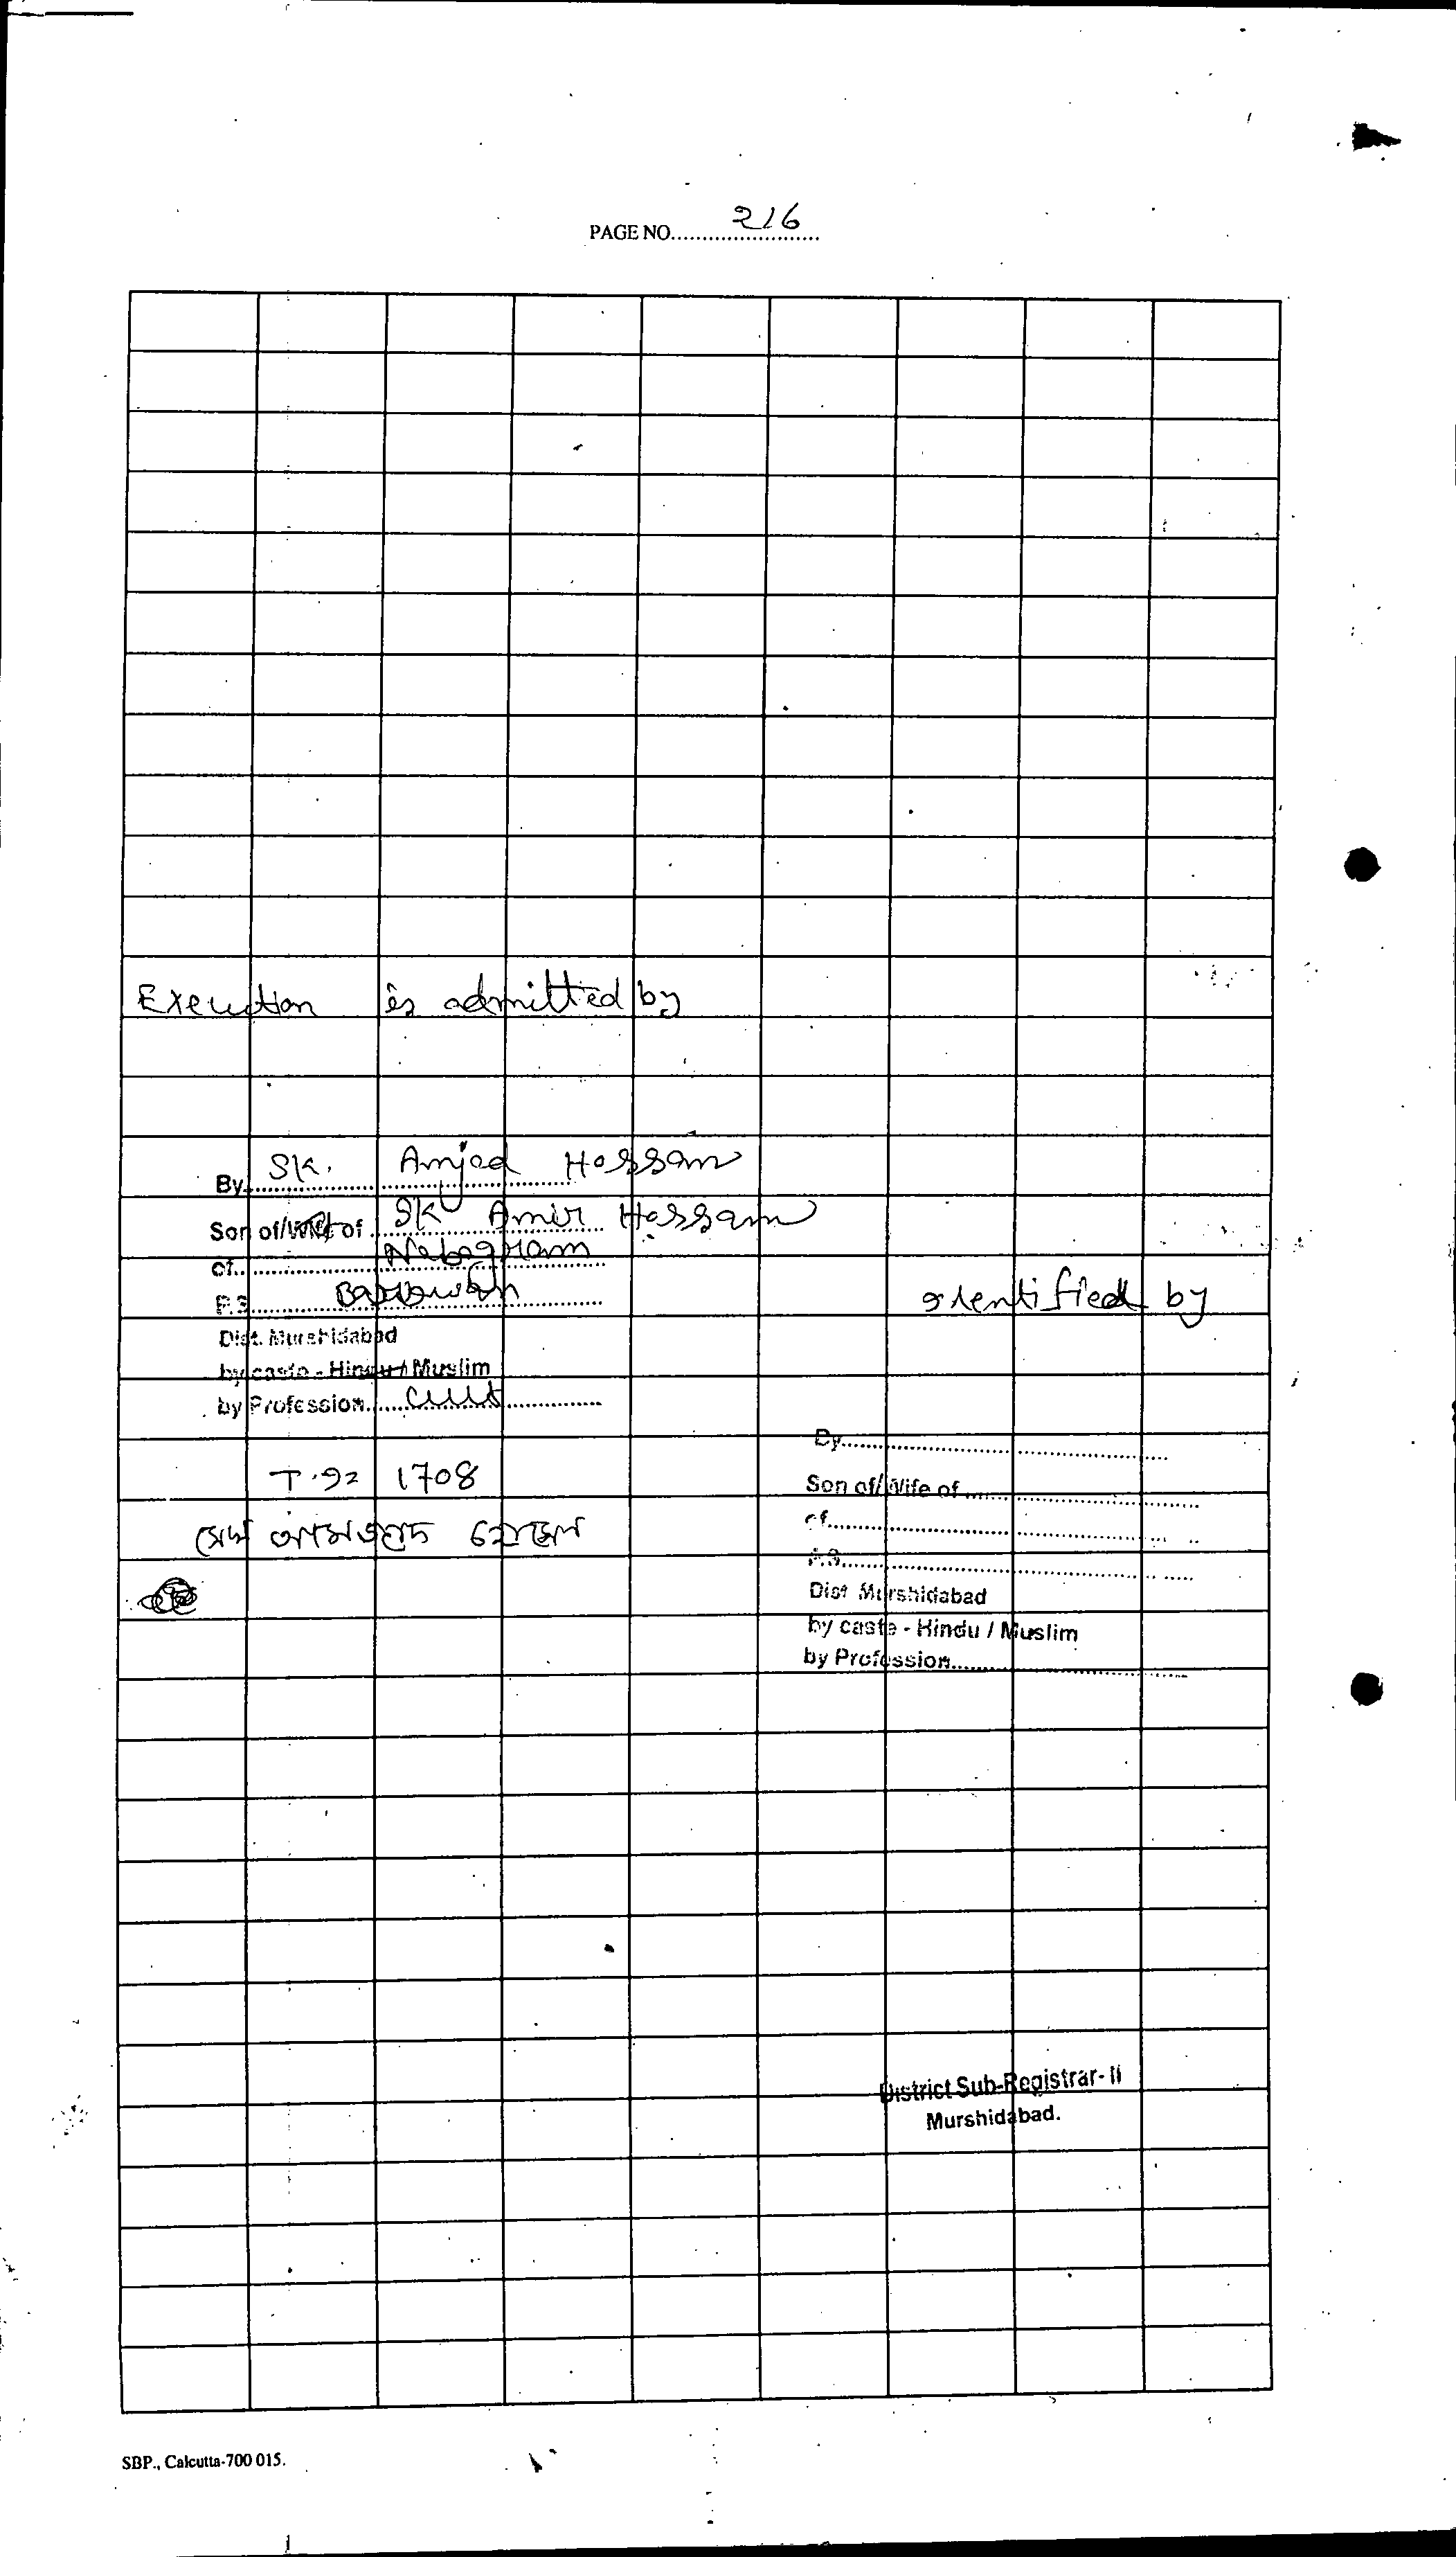 PAGE NO. 216
Execution is admitted by
By SK. Amjad Hossain
Son of/Wife of SK Amir Hossain
of Nabagram
P.S.
Dist. Murshidabad
by caste - Hindu / Muslim
by Profession
identified by
T.92 1708
সেখ আমজাদ হোসেন
By
Son of/Wife of
of
P.S.
Dist Murshidabad
by caste - Hindu / Muslim
by Profession
District Sub-Registrar-II
Murshidabad.
SBP., Calcutta-700 015.